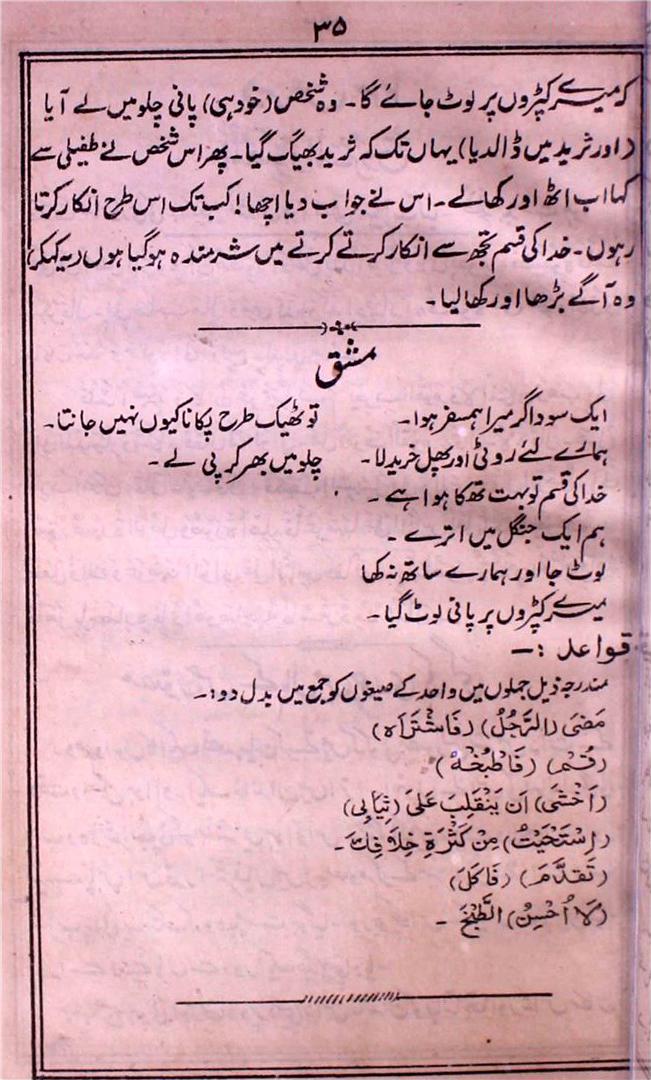 ۳۵
کہ میرے کپڑوں پر لوٹ جائے گا۔ وہ شخص (خود ہی) پانی چلو میں لے آیا
(اور ثرید میں ڈالدیا) یہاں تک کہ ثرید بھیگ گیا۔ پھر اس شخص نے طفیلی سے
کہا اب اٹھ اور کھالے۔ اس نے جواب دیا اچھا! کب تک اس طرح انکار کرتا
رہوں۔ خدا کی قسم تجھ سے انکار کرتے کرتے میں شرمندہ ہوگیا ہوں (یہ کہکر)
وہ آگے بڑھا اور کھالیا۔
مشق
ایک سوداگر میرا ہمسفر ہوا۔ تو ٹھیک طرح پکانا کیوں نہیں جانتا۔
ہمارے لئے روٹی اور پھل خرید لا۔ چلو میں بھر کر پی لے۔
خدا کی قسم تو بہت تھکا ہوا ہے۔
ہم ایک جنگل میں اترے۔
لوٹ جا اور ہمارے ساتھ نہ کھا
میرے کپڑوں پر پانی لوٹ گیا۔
قواعد :۔
مندرجہ ذیل جملوں میں واحد کے صیغوں کو جمع میں بدل دو:۔
مَضَى (الرَّجُلُ) (فَاشْتَرَاهُ)
(قُمْ) (فَاطْبُخْهُ)
(اَخْشَى) اَن يَنْقَلِبَ عَلَىٰ (ثِيَابِى)
(اِسْتَحْيَيْتُ) مِنْ كَثْرَةِ خِلَافِكَ۔
(تَقَدَّمَ) (فَاكَلَ)
(لَا اُحْسِنُ) الطَّبْخَ ۔